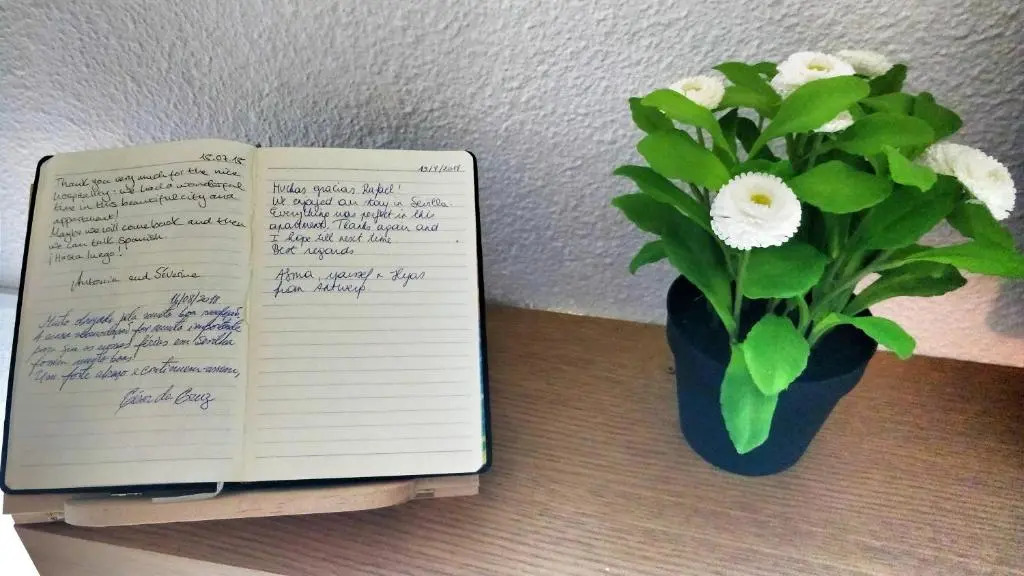 15.07.18
Thank you very much for the nice
hospitality. we had a wonderful
time in this beautiful city and
appartment!
Maybe we will come back and then
we can talk spanish
¡Hasta luego!
Antonia and Séverine
14/08/2018
Muito obrigado pela muito boa recepção,
A nossa foi muito importante
para que as nossas férias em Sevilha
fossem muito boas!
Um forte abraço e continuem assim,
da Cruz
19/9/2018
Muchas gracias Rafael!
We enjoyed our stay in Sevilla.
Everything was perfect in this
apartment. Thanks again and
I hope till next time
Best regards
Asma
from Antwerp